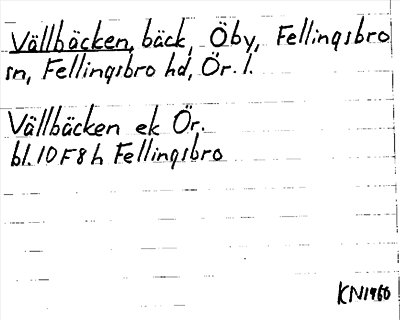 Vällbäcken, bäck, Öby, Fellingsbro
sn, Fellingsbro hd, Ör. l.
Vällbäcken ek Ör.
bl. 10F8h Fellingsbro
KN1960